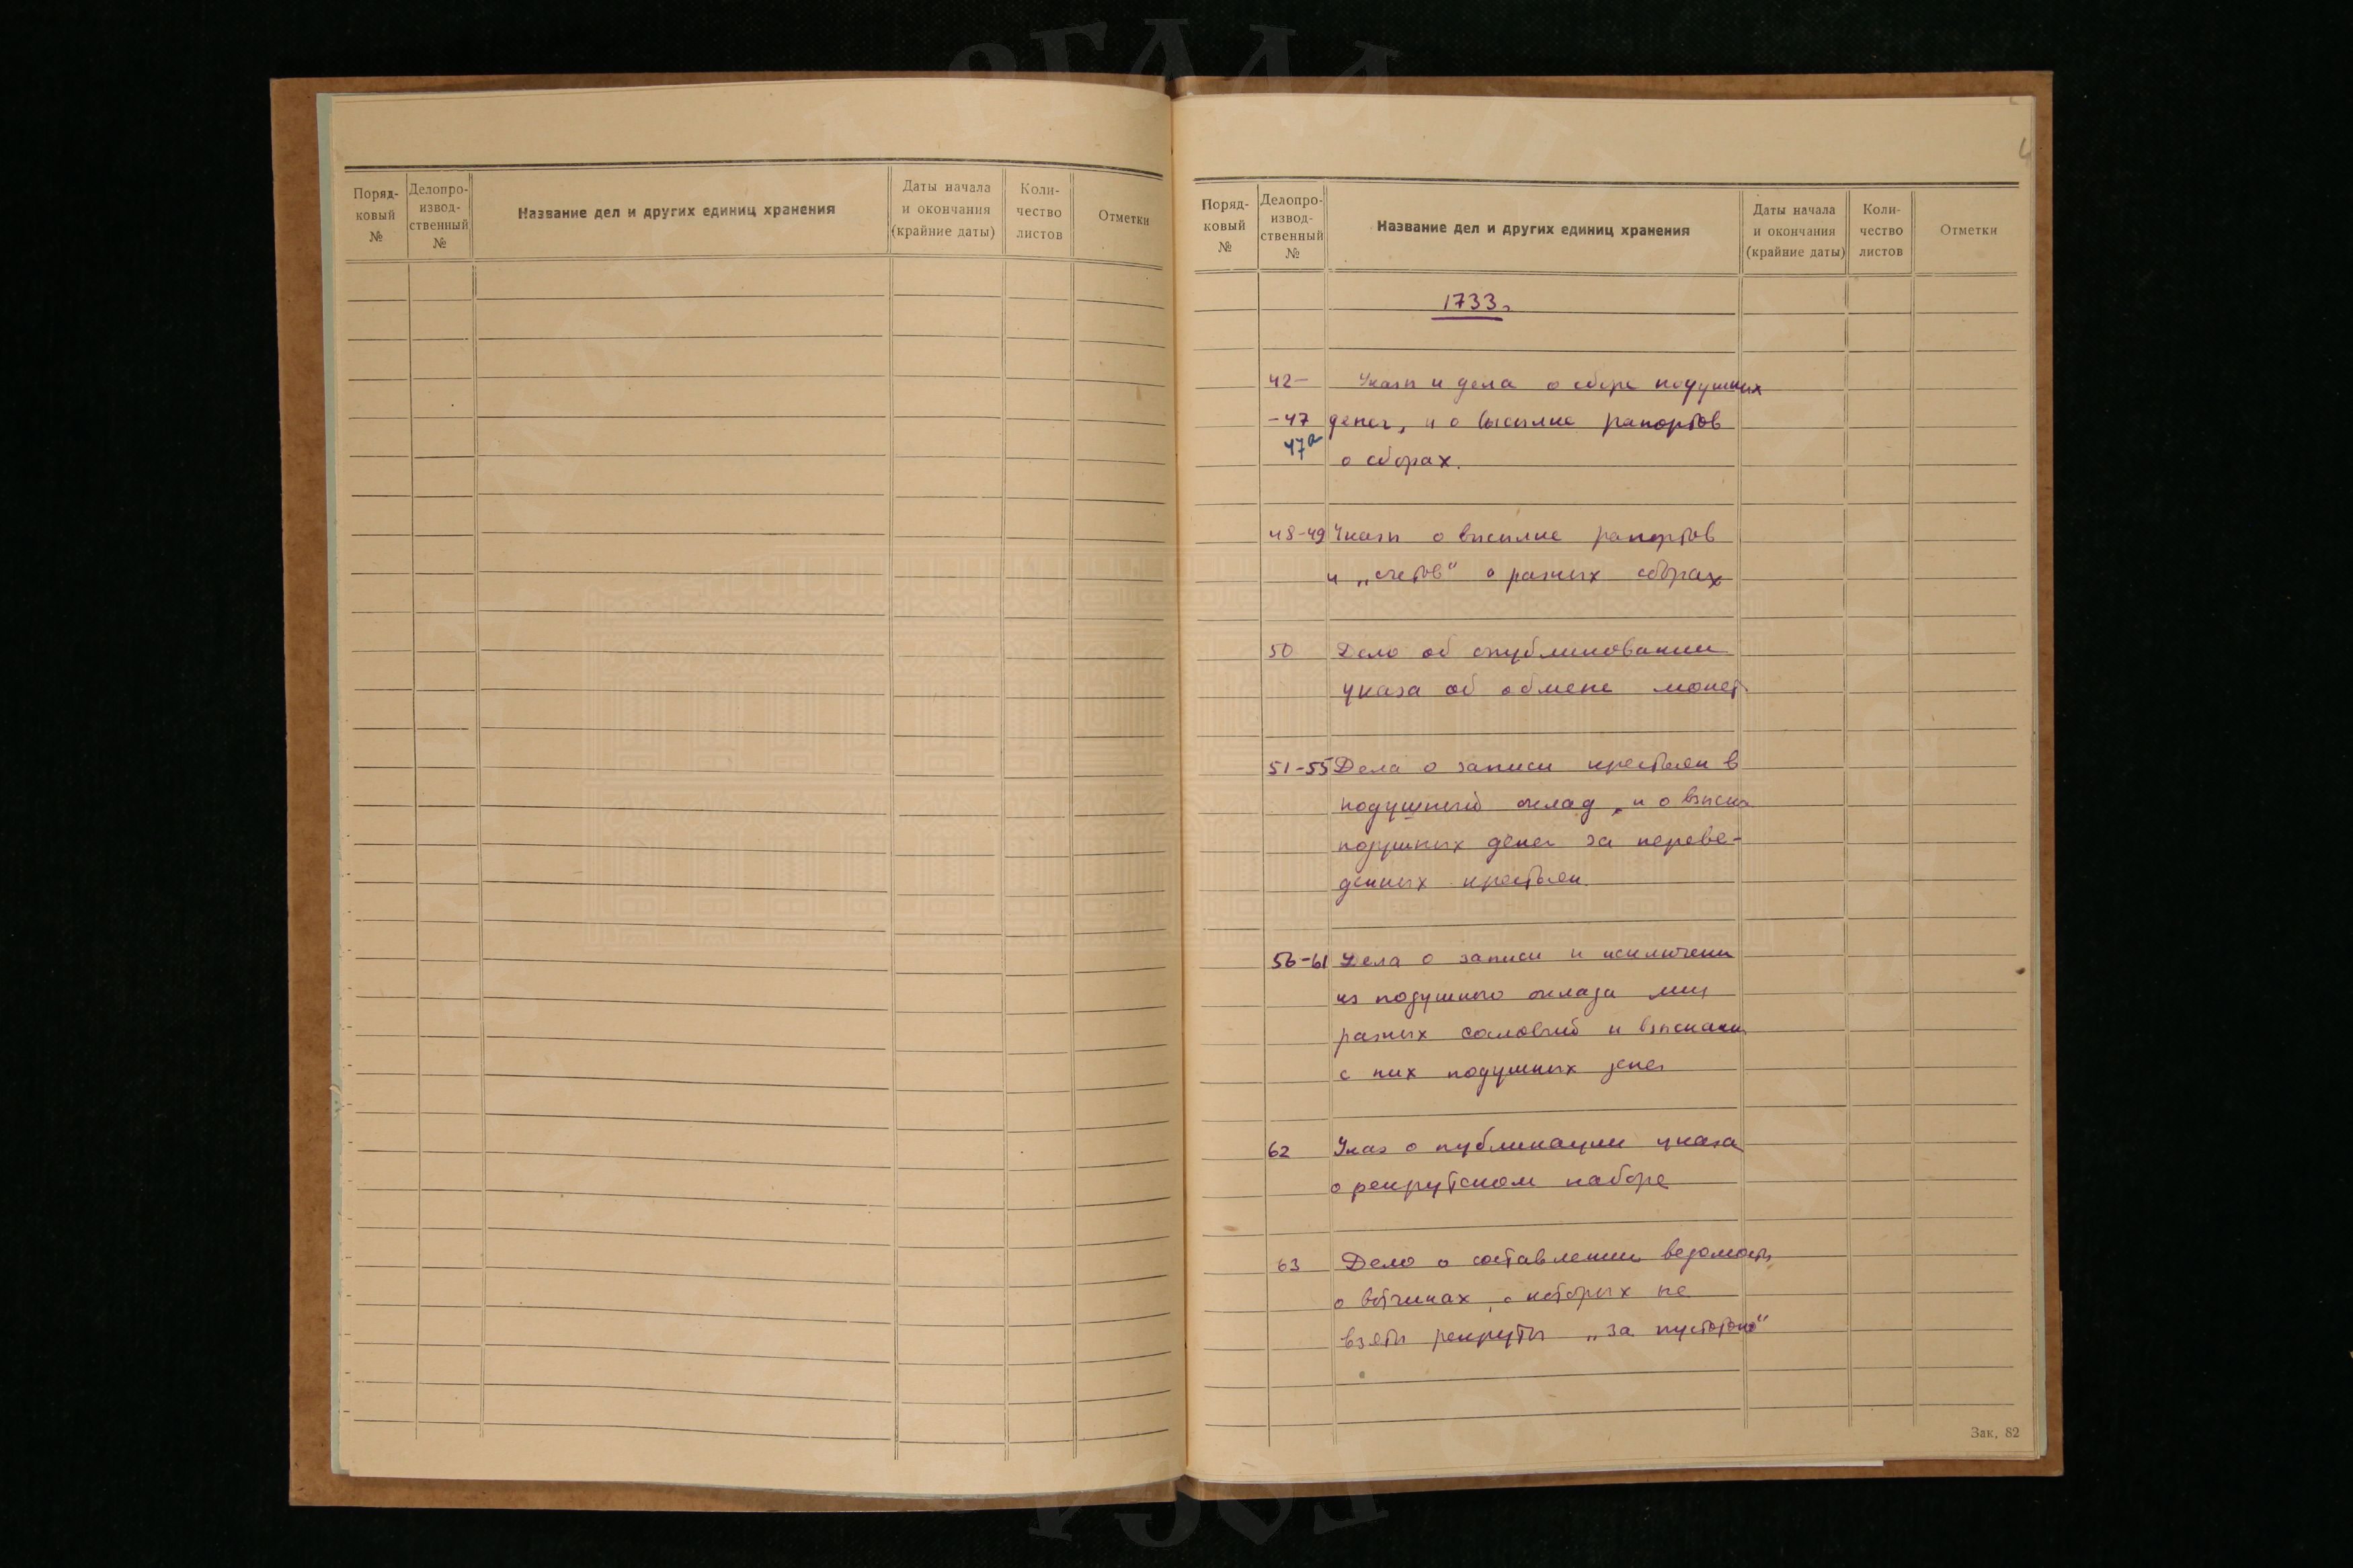 Поряд-
ковый
№
Делопро-
извод-
ственный
№
Название дел и других единиц хранения
Даты начала
и окончания
(крайние даты)
Коли-
чество
листов
Отметки
4
Поряд-
ковый
№
Делопро-
извод-
ственный
№
Название дел и других единиц хранения
Даты начала
и окончания
(крайние даты)
Коли-
чество
листов
Отметки
1733г.
42- Указы и дела о сборе подушных
-47 денег, и о высылке рапортов
47а
о сборах.
48-49 Указы о высылке рапортов
и „счетов" о разных сборах
50 Дело об опубликовании
указа об обмене монет
51-55 Дела о записи крестьян в
подушный оклад, и о взыска
подушных денег за переве-
денных крестьян
56-61 Дела о записи и исключении
из подушного оклада лиц
разных сословий и взыскании
с них подушных денег
62 Указ о публикации указа
о рекрутском наборе
63 Дело о составлении ведомости
о вотчинах, с которых не
взяты рекруты „за пустотою"
Зак. 82